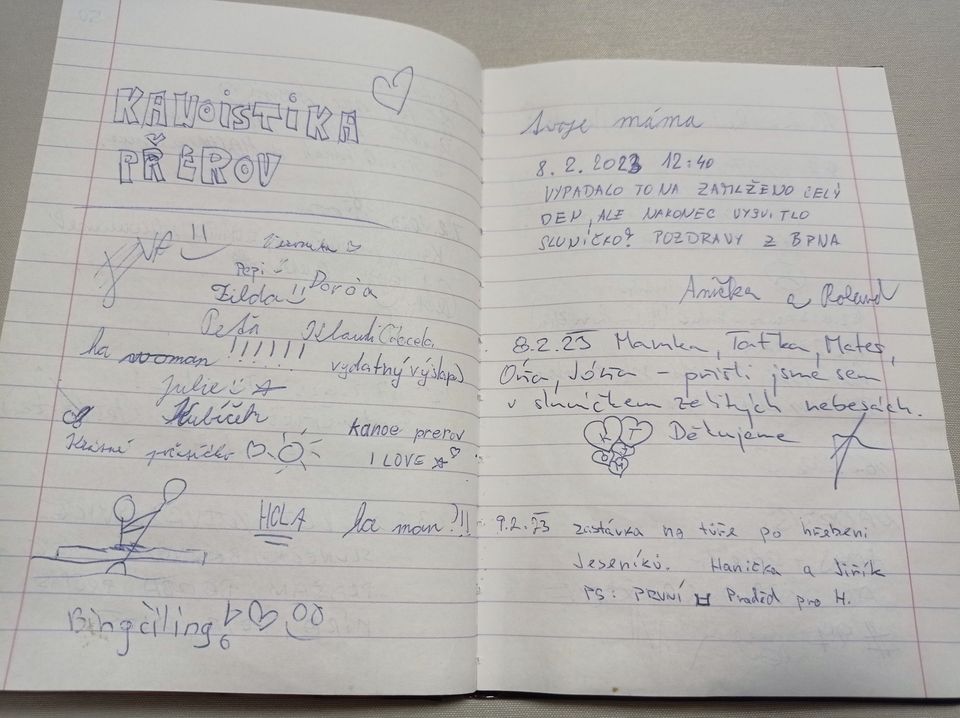 KANOISTIKA
PŘEROV
Pepi
Zilda Doróa
Petr
la wooman !!!!!!
vydatný výšlap
Julie
Kubíček
kanoe prerov
Krásné
I LOVE
HOLA la man?!!
Bingčiling
Tvoje máma
8. 2. 2023 12:40
VYPADALO TO NA ZAMLŽENO CELÝ
DEN, ALE NAKONEC VYSVITLO
SLUNÍČKO? POZDRAVY Z BRNA
Anička a Roland
8.2.23 Mamka, Taťka, Mates,
Ona, Jóna - přišli jsme sem
v sluníčkem zelitých nebesách.
K T
O M
Děkujeme
9.2.23 zastávka na túře po hřebeni
Jeseníků. Hanička a Jiřík
PS: PRVNÍ Praděd pro H.